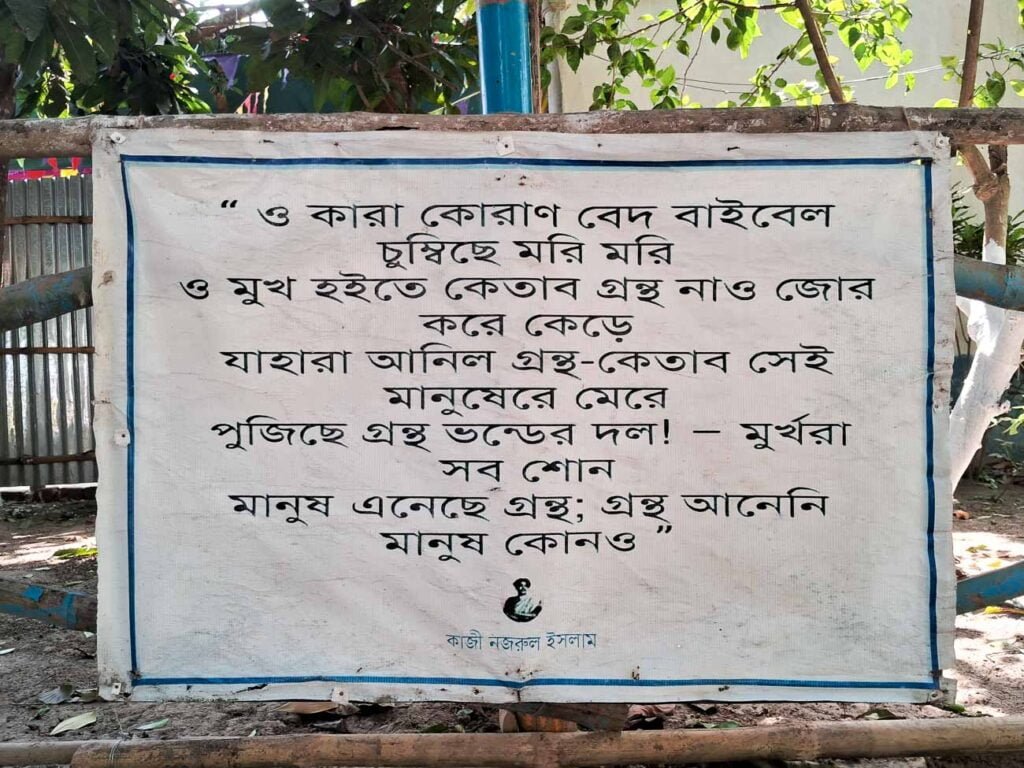 “ ও কারা কোরাণ বেদ বাইবেল
চুম্বিছে মরি মরি
ও মুখ হইতে কেতাব গ্রন্থ নাও জোর
করে কেড়ে
যাহারা আনিল গ্রন্থ-কেতাব সেই
মানুষেরে মেরে
পুজিছে গ্রন্থ ভন্ডের দল! – মুর্খরা
সব শোন
মানুষ এনেছে গ্রন্থ; গ্রন্থ আনেনি
মানুষ কোনও ”
কাজী নজরুল ইসলাম